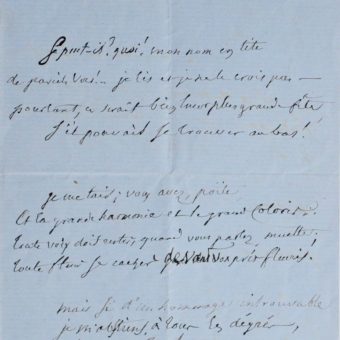 Se peut-il? quoi! mon nom en tête
de pareils vers! .. je lis et je ne le crois pas —
pourtant, ce serait bien leur plus grande fête
S'il pouvait se trouver au bas!
je me tais; vous avez, poëte
Et la grande harmonie et le grand Coloris.
toute voix doit rester, quand vous parlez, muette;
toute fleur se cacher devant vos prés fleuris!
mais si d'un hommage introuvable
je m'abstiens, à tous les degrés,